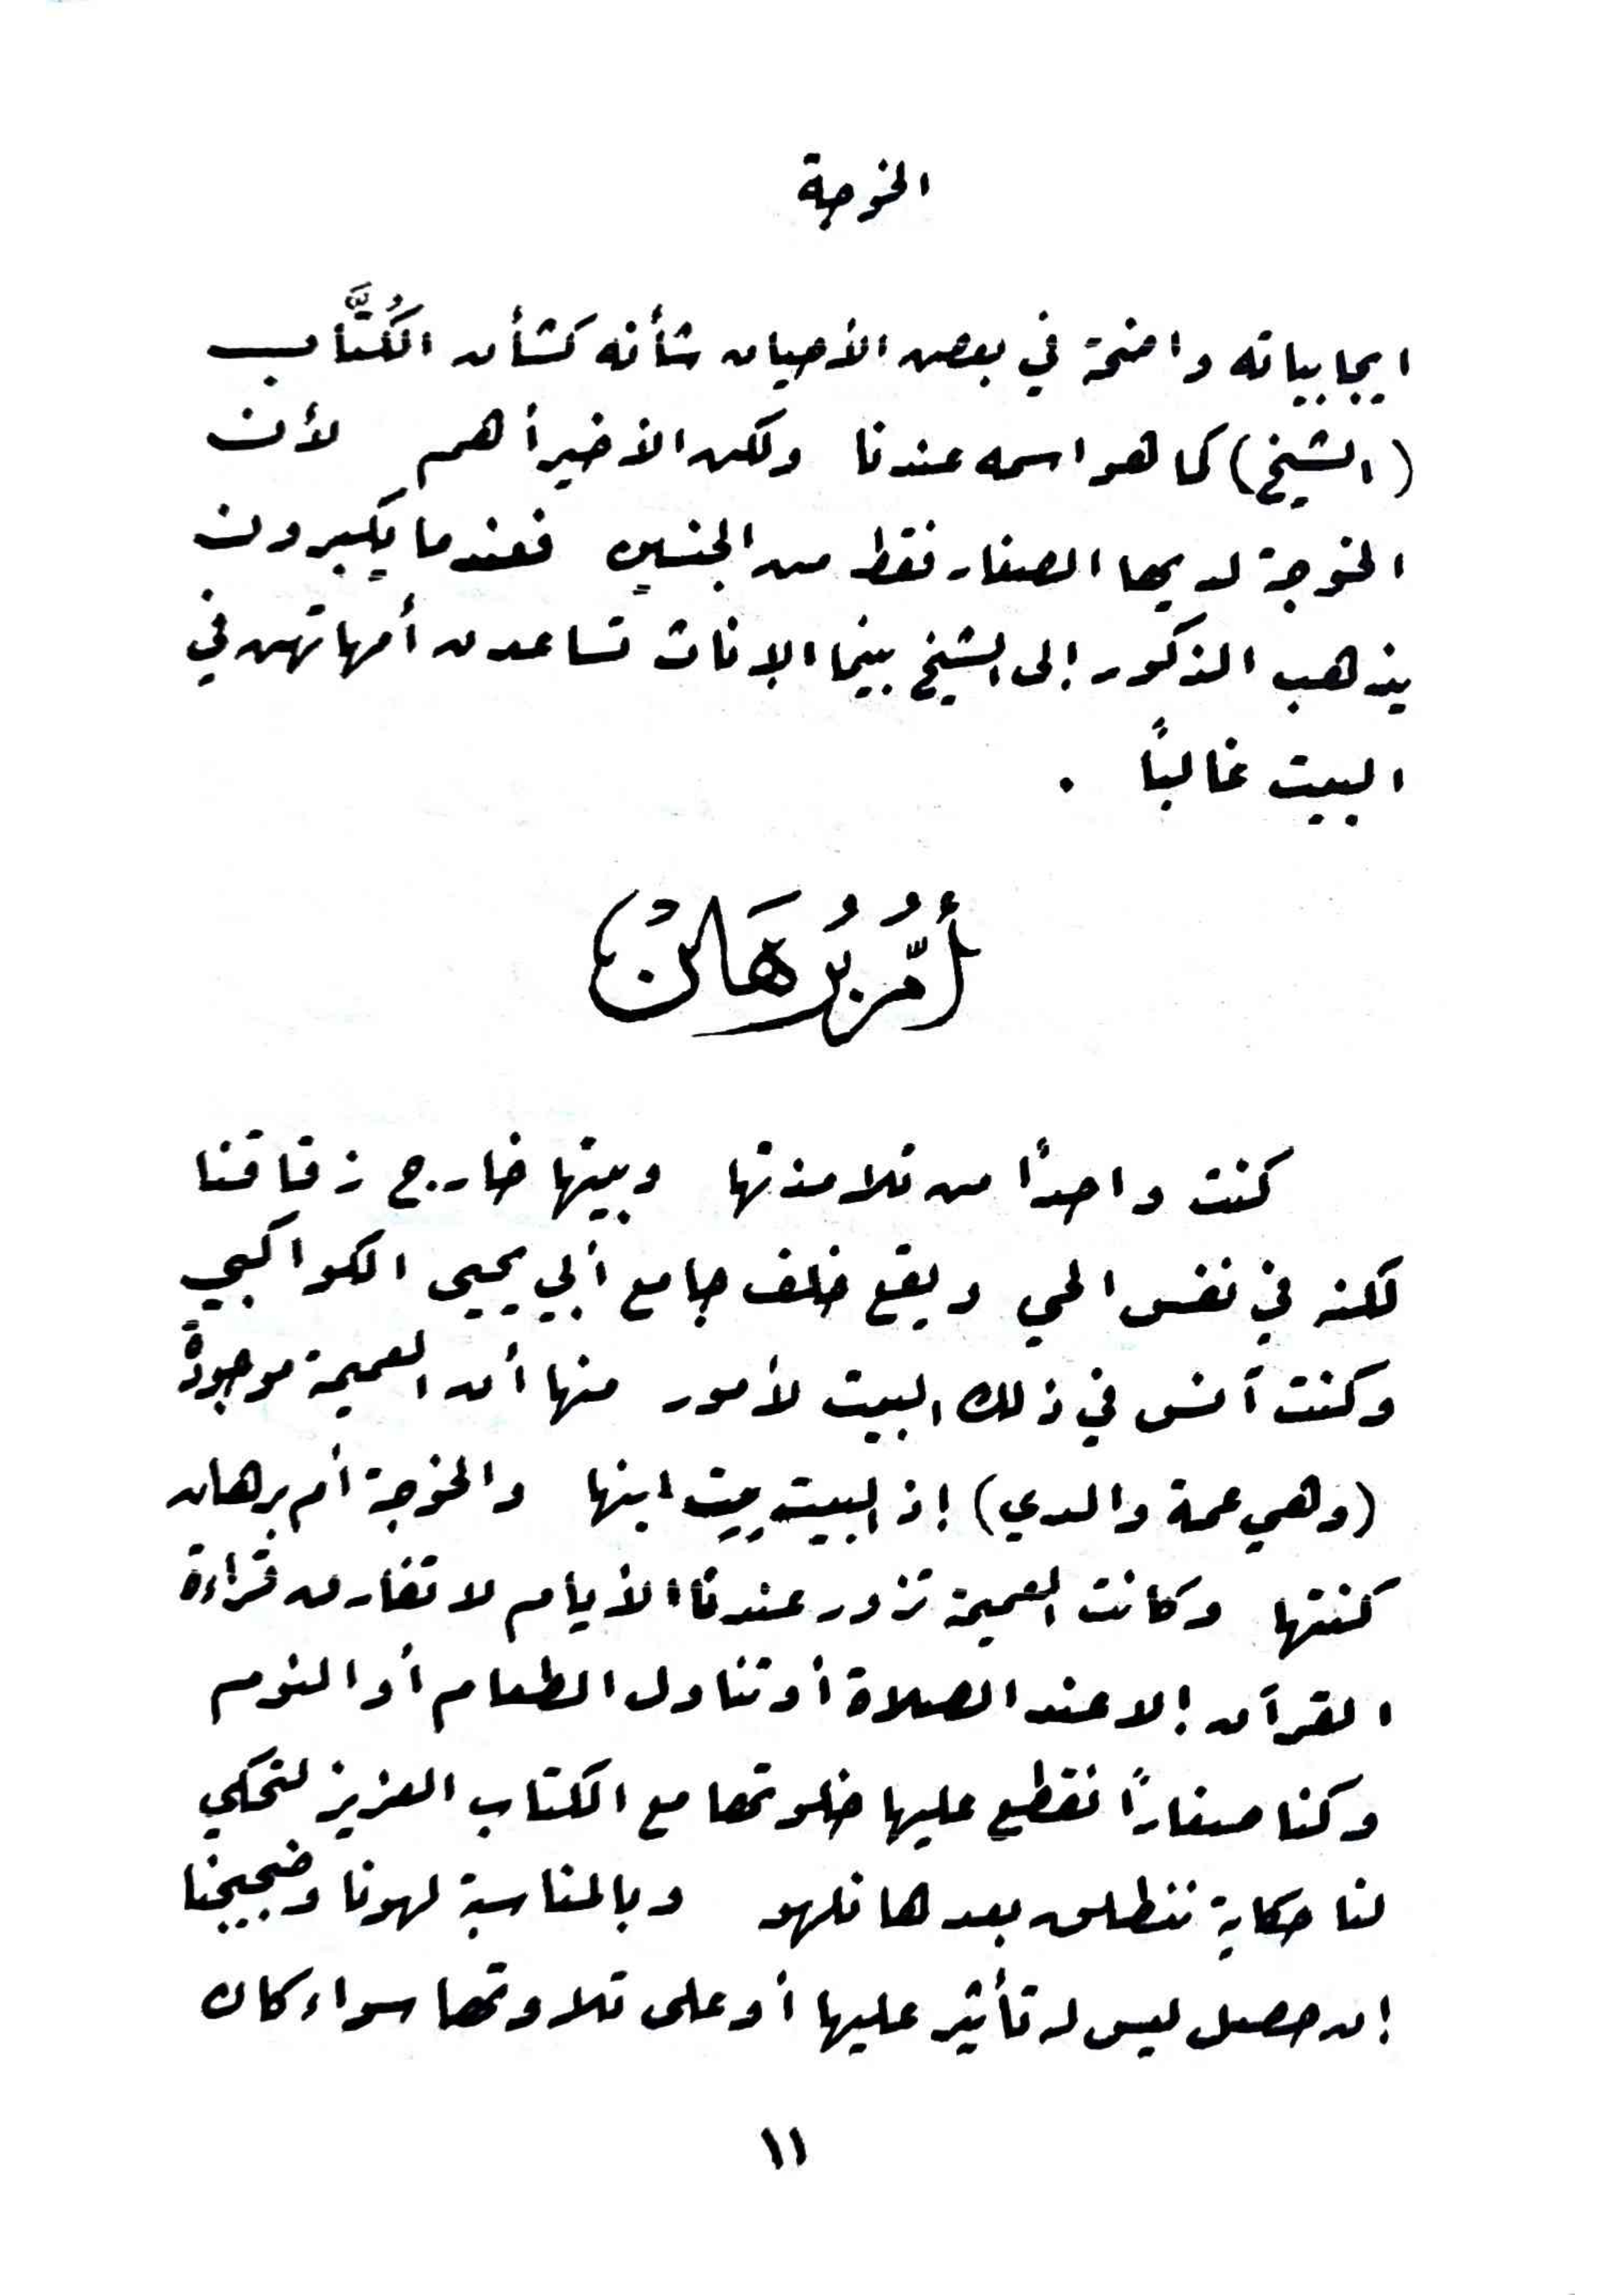 الخوجة
ايجابياته واضحة في بعض الأحيان شأنه كشأن الكُتَّاب
(الشيخ) كما هو اسمه عندنا ولكن الأخير أهم لأن
الخوجة لديها الصغار فقط من الجنسين فعندما يكبرون
يذهب الذكور إلى الشيخ بينما الإناث تساعدن أمهاتهن في
البيت غالباً .
أُمُّ بُرْهَانْ
كنت واحداً من تلامذتها وبيتها خارج زقاقنا
لكنه في نفس الحي ويقع خلف جامع أبي يحيى الكواكبي
وكنت آنس في ذلك البيت لأمور منها أن العميمة موجودةٌ
(وهي عمة والدي) إذ البيت بيت ابنها والخوجة أم برهان
كنتها وكانت العميمة تزور عندنا الأيام لا تفارق قراءة
القرآن إلا عند الصلاة أو تناول الطعام أو النوم
وكنا صغاراً نقطع عليها خلوتها مع الكتاب العزيز لتحكي
لنا حكاية ننطلق بعدها نلهو وبالمناسبة لهونا وضجيجنا
إن حصل ليس له تأثير عليها أو على تلاوتها سواء كان
١١